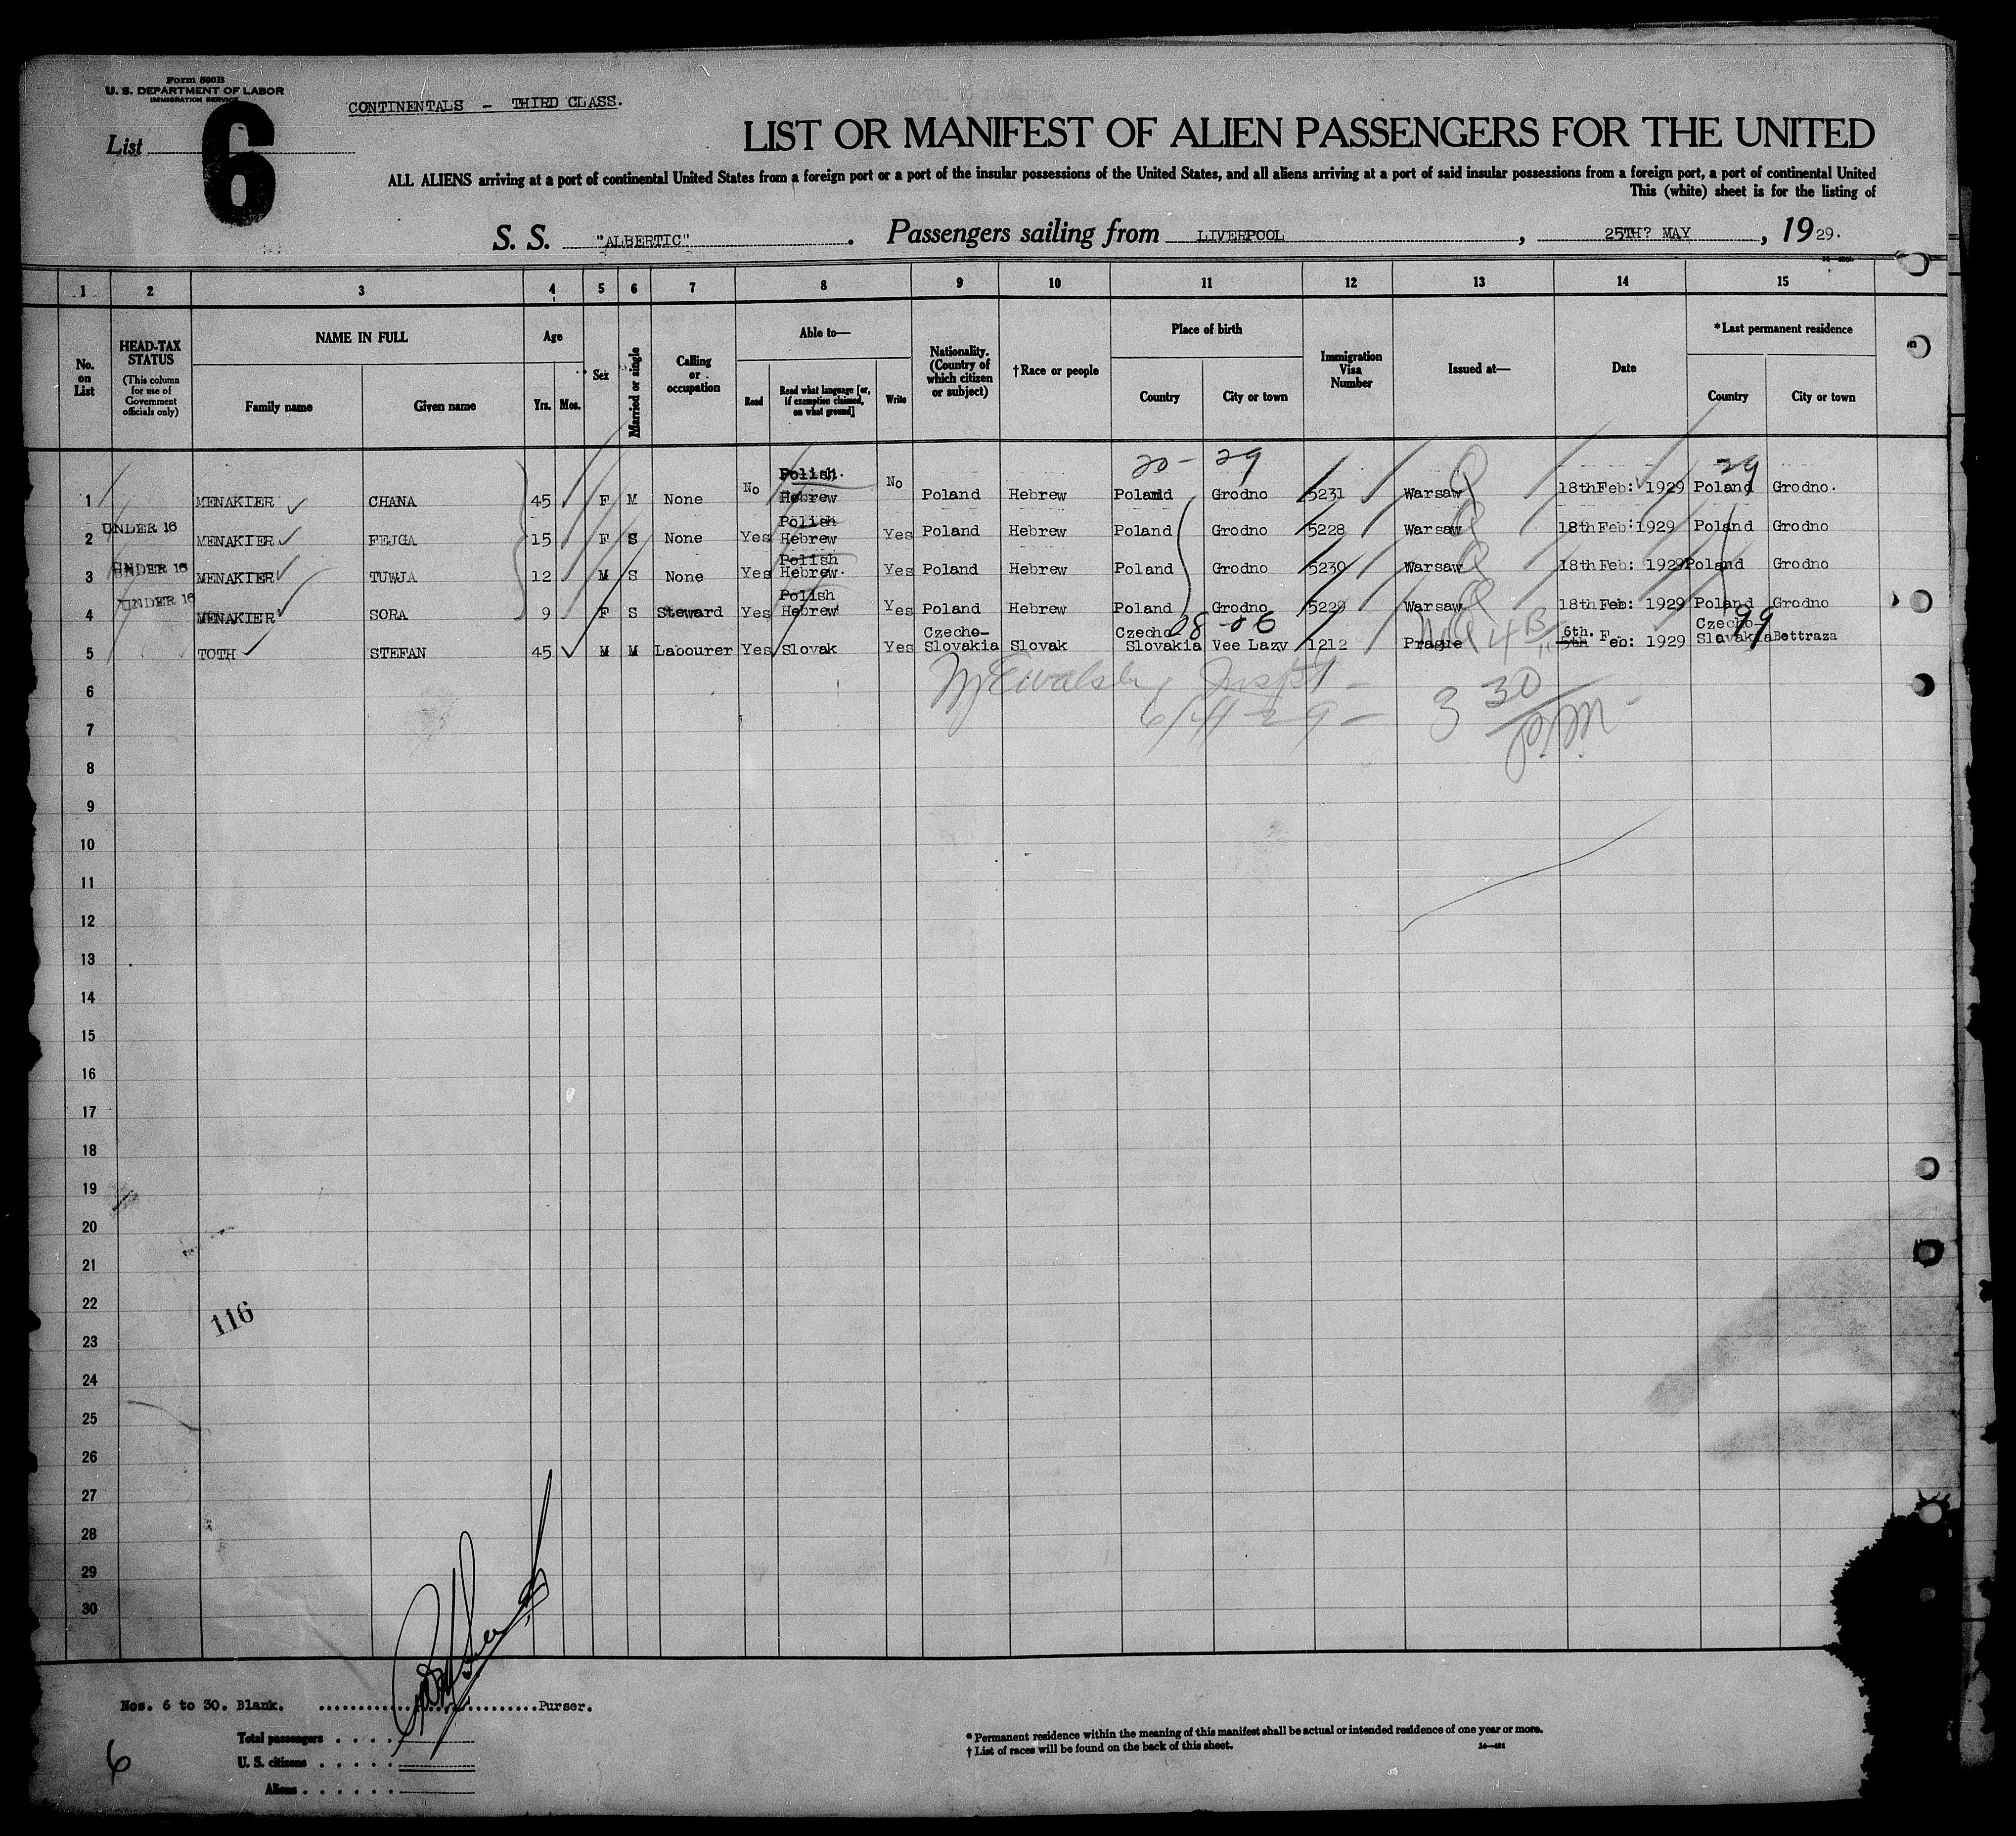 Form 500B
U. S. DEPARTMENT OF LABOR
IMMIGRATION SERVICE
CONTINENTALS - THIRD CLASS.
List 6
LIST OR MANIFEST OF ALIEN PASSENGERS FOR THE UNITED
ALL ALIENS arriving at a port of continental United States from a foreign port or a port of the insular possessions of the United States, and all aliens arriving at a port of said insular possessions from a foreign port, a port of continental United
This (white) sheet is for the listing of
S. S. "ALBERTIC". Passengers sailing from LIVERPOOL, 25TH? MAY, 1929.
1 2 3 4 5 6 7 8 9 10 11 12 13 14 15
No. on List
HEAD-TAX STATUS (This column for use of Government officials only)
NAME IN FULL
Family name Given name
Age
Yrs. Mos.
Sex
Married or single
Calling or occupation
Able to—
Read Read what language [or, if exemption claimed, on what ground] Write
Nationality. (Country of which citizen or subject)
†Race or people
Place of birth
Country City or town
Immigration Visa Number
Issued at—
Date
*Last permanent residence
Country City or town
20 - 29 29
1 MENAKIER CHANA 45 F M None No Polish Hebrew No Poland Hebrew Poland Grodno 5231 Warsaw 18th Feb: 1929 Poland Grodno.
UNDER 16
2 MENAKIER FEJGA 15 F S None Yes Polish Hebrew Yes Poland Hebrew Poland Grodno 5228 Warsaw 18th Feb: 1929 Poland Grodno
UNDER 16
3 MENAKIER TUWJA 12 M S None Yes Polish Hebrew. Yes Poland Hebrew Poland Grodno 5230 Warsaw 18th Feb: 1929 Poland Grodno
UNDER 16
4 MENAKIER SORA 9 F S Steward Yes Polish Hebrew Yes Poland Hebrew Poland Grodno 5229 Warsaw 18th Feb: 1929 Poland Grodno
08 - 06 99
5 TOTH STEFAN 45 M M Labourer Yes Slovak Yes Czecho-Slovakia Slovak Czecho Slovakia Vee Lazy 1212 Prague 6th. Feb: 1929 Czecho-Slovakia Bettraza
6
3 30
7
P.M.
8
9
10
11
12
13
14
15
16
17
18
19
20
21
22
116
23
24
25
26
27
28
29
30
Nos. 6 to 30. Blank. Purser.
Total passengers
U. S. citizens
Aliens
6
* Permanent residence within the meaning of this manifest shall be actual or intended residence of one year or more.
† List of races will be found on the back of this sheet.